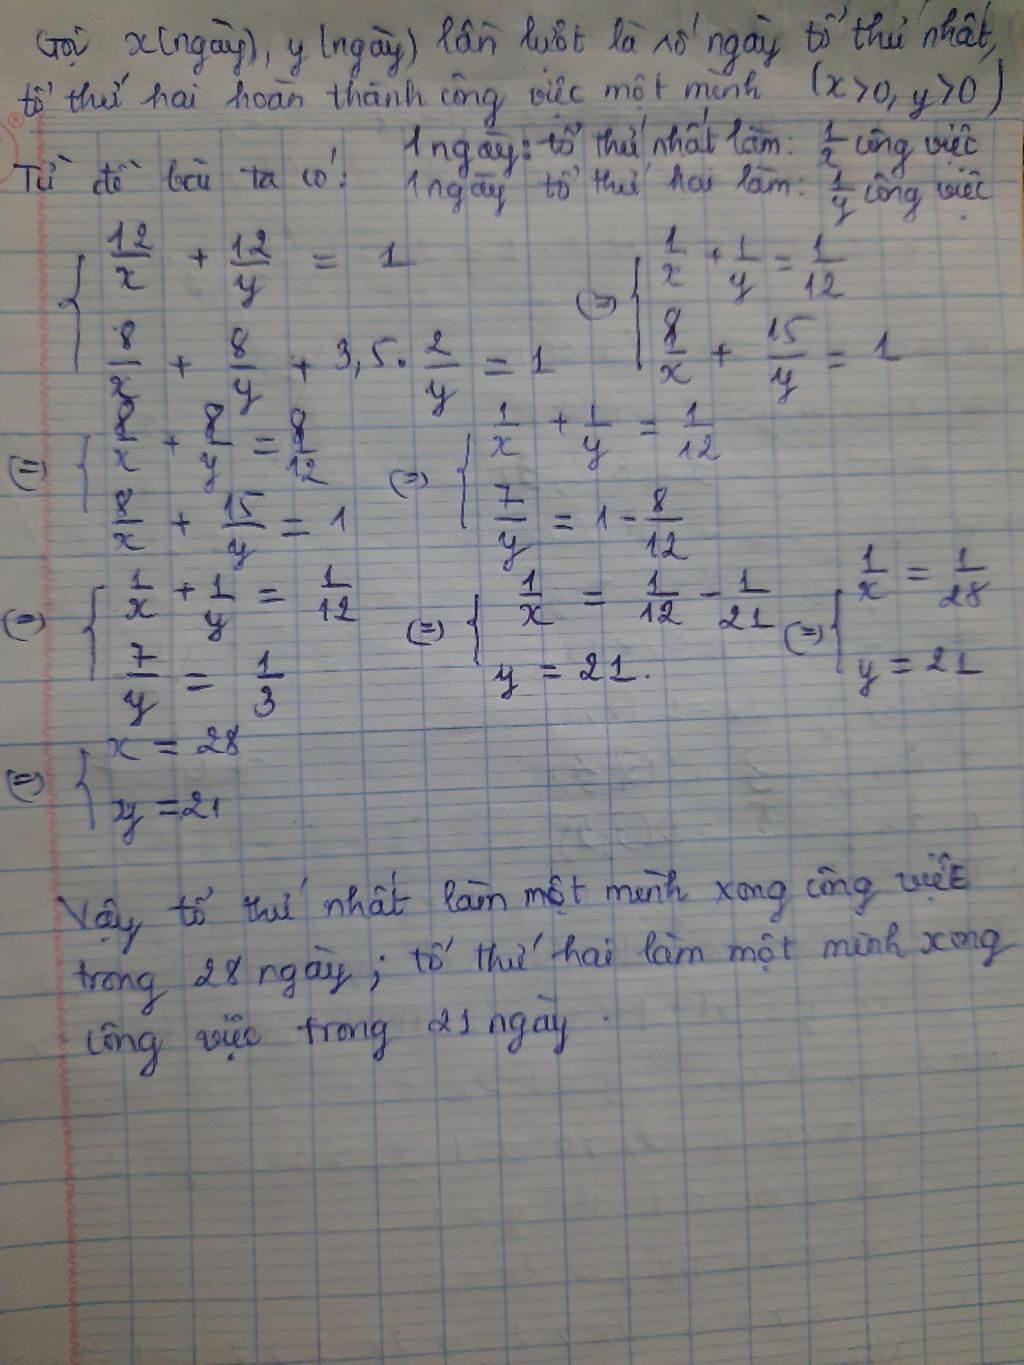 Gọi x(ngày), y(ngày) lần lượt là số ngày tổ thứ nhất,
tổ thứ hai hoàn thành công việc một mình (x>0, y>0)
1 ngày: tổ thứ nhất làm: 1/x công việc
Từ đề bài ta có: 1 ngày tổ thứ hai làm: 1/y công việc
{ 12/x + 12/y = 1 (=) { 1/x + 1/y = 1/12
8/x + 8/y + 3,5. 2/y = 1 8/x + 15/y = 1
(=) { 8/x + 8/y = 8/12 (=) { 1/x + 1/y = 1/12
8/x + 15/y = 1 7/y = 1 - 8/12
(=) { 1/x + 1/y = 1/12 (=) { 1/x = 1/12 - 1/21 (=) { 1/x = 1/28
7/y = 1/3 y = 21. y = 21
(=) { x = 28
y = 21
Vậy tổ thứ nhất làm một mình xong công việc
trong 28 ngày; tổ thứ hai làm một mình xong
công việc trong 21 ngày.